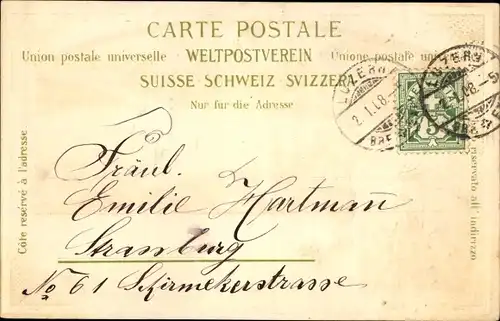 CARTE POSTALE
Union postale universelle WELTPOSTVEREIN Unione postale uni
SUISSE SCHWEIZ SVIZZERA
Nur für die Adresse
Côté réservé à l'adresse
riservato all' indirizzo
LUZERN
2.I.08.
BRF
LUZERN
I.08.
5
Fräul.
Emilie Hartmann
Strassburg
No 61 Schirmekerstrasse